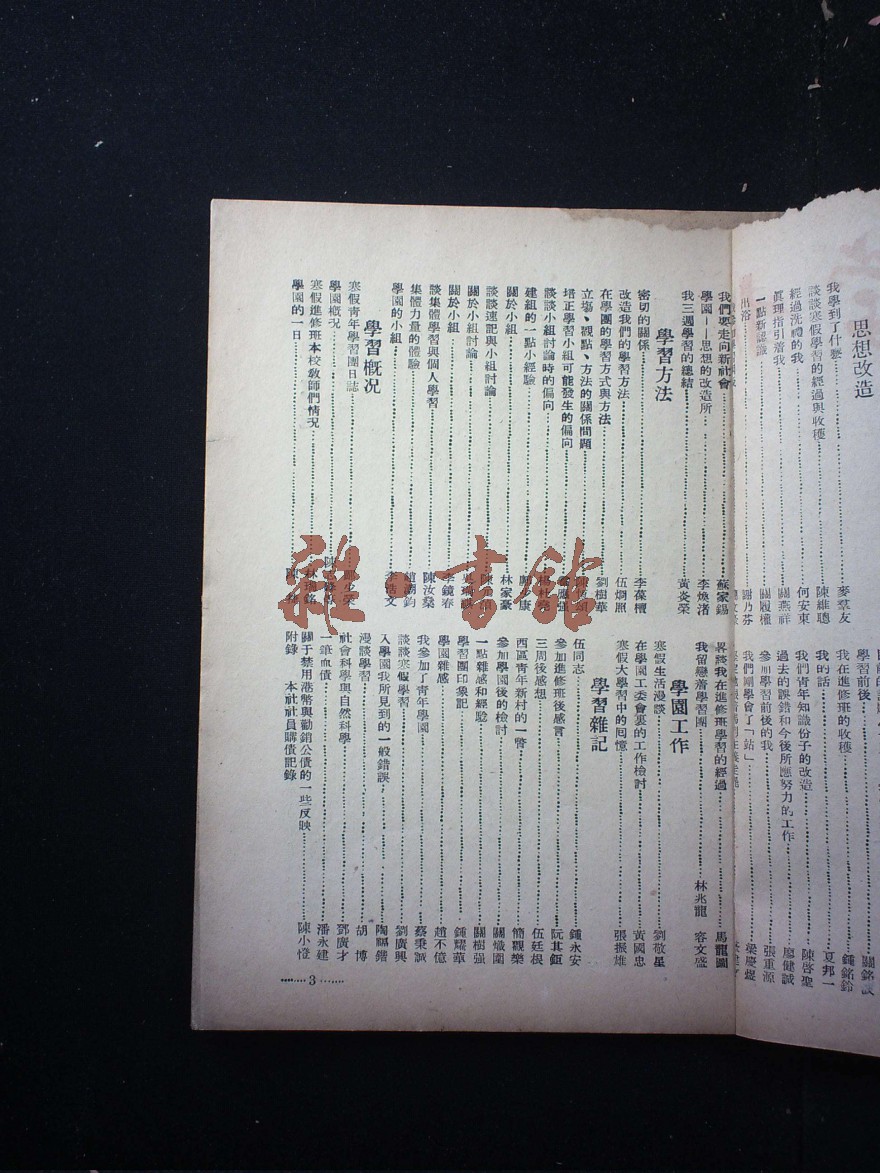 思想改造
我學到了什麼 麥羣友
談談寒假學習的經過與收穫 陳維聰
經過洗禮的我 何安東
眞理指引着我 關燕祥
一點新認識 關履權
出浴 謝乃芬
我們要走向新社會 蘇家錫
學園——思想的改造所 李煥渚
我三週學習的總結 黃炎榮
學習方法
密切的關係 李葆檀
改造我們的學習方法 伍炯照
在學團的學習方式與方法 劉樹華
立場、觀點、方法的關係問題
培正學習小組可能發生的偏向
談談小組討論時的偏向
建組的一點小經驗
關於小組 林家豪
談談速記與小組討論
關於小組討論
關於小組 李鏡春
談集體學習與個人學習 陳汝燊
集體力量的體驗 趙灝鈞
學園的小組 李浩文
學習概況
寒假青年學習團日誌
學園概況
寒假進修班本校敎師們情況
學園的一日
學習前後
我在進修班的收穫 鍾銘鈴
我的話 夏邦一
我們青年知識份子的改造 陳啓聖
過去的誤錯和今後所應努力的工作 廖健誠
參加學習前後的我 張重源
我們剛學會了「站」 梁慶煜
畧談我在進修班學習的經過 馬龍圖
我留戀着學習團 林兆龍 容文盛
學園工作
寒假生活漫談 劉敬星
在學園工委會裏的工作檢討 黃國忠
寒假大學習中的囘憶 張振雄
學習雜記
伍同志 鍾永安
參加進修班後感言 阮其鉅
三周後感想 伍廷根
西區青年新村的一瞥 簡觀樂
參加學園後的檢討 關熾圍
一點雜感和經驗 關樹强
學習團印象記 鍾燿華
學園雜感 趙不億
我參加了青年學園 蔡秉誠
談談寒假學習 劉廣興
入學園我所見到的一般錯誤 陶福鍇
漫談學習 胡博
社會科學與自然科學 鄧廣才
一筆血債 潘永建
關于禁用港幣與勸銷公債的一些反映 陳小憕
附錄 本社社員購債記錄
3
雜·書館